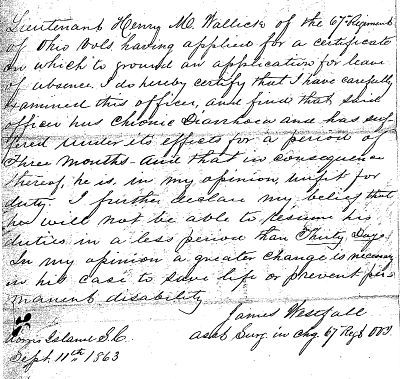 Lieutenant Henry M. Wallick of the 67th Regiment
of Ohio Vols having applied for a certificate
on which to ground an application for leave
of absence. I do hereby certify that I have carefully
examined this officer, and find that said
officer has Chronic Diarrhoea and has suf-
fered under its effects for a period of
Three Months - And that in consequence
thereof, he is, in my opinion, unfit for
duty. I further declare my belief that
he will not be able to resume his
duties in a less period than Thirty Days.
In my opinion a greater change is necessary
in his case to save life or prevent per-
manent disability
James Westfall
Asst Surg. in Chg. 67 Regt OVI
Morris Island S.C.
Sept. 11th 1863